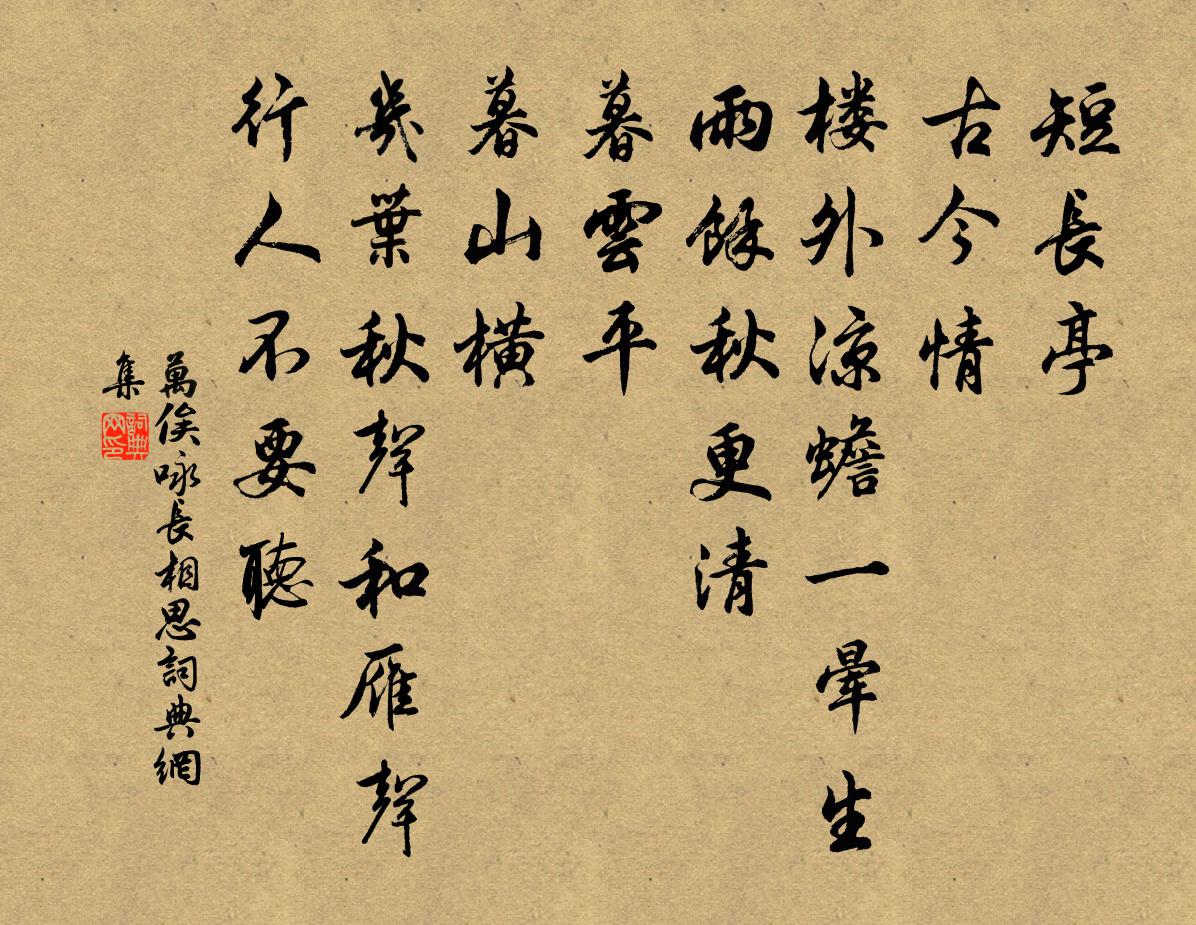 短長亭
古今情
楼外凉蟾一暈生
雨餘秋更清
暮雲平
暮山横
幾葉秋聲和雁聲
行人不要聽
萬俟咏長相思詞典網
集
詞典
网印